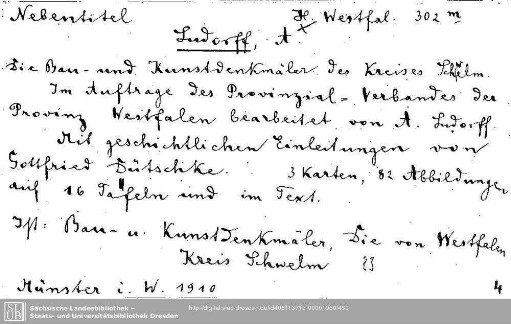 Nebentitel H. Westfal. 302 m
Ludorff, A.
Die Bau- und Kunstdenkmäler des Kreises Schwelm.
Im Auftrage des Provinzial-Verbandes der
Provinz Westfalen bearbeitet von A. Ludorff.
Mit geschichtlichen Einleitungen von
Gottfried Dütschke. 3 Karten, 82 Abbildungen
auf 16 Tafeln und im Text.
Ist: Bau- u. Kunstdenkmäler, Die von Westfalen
Kreis Schwelm
Münster i. W. 1910 4
Sächsische Landesbibliothek –
Staats- und Universitätsbibliothek Dresden